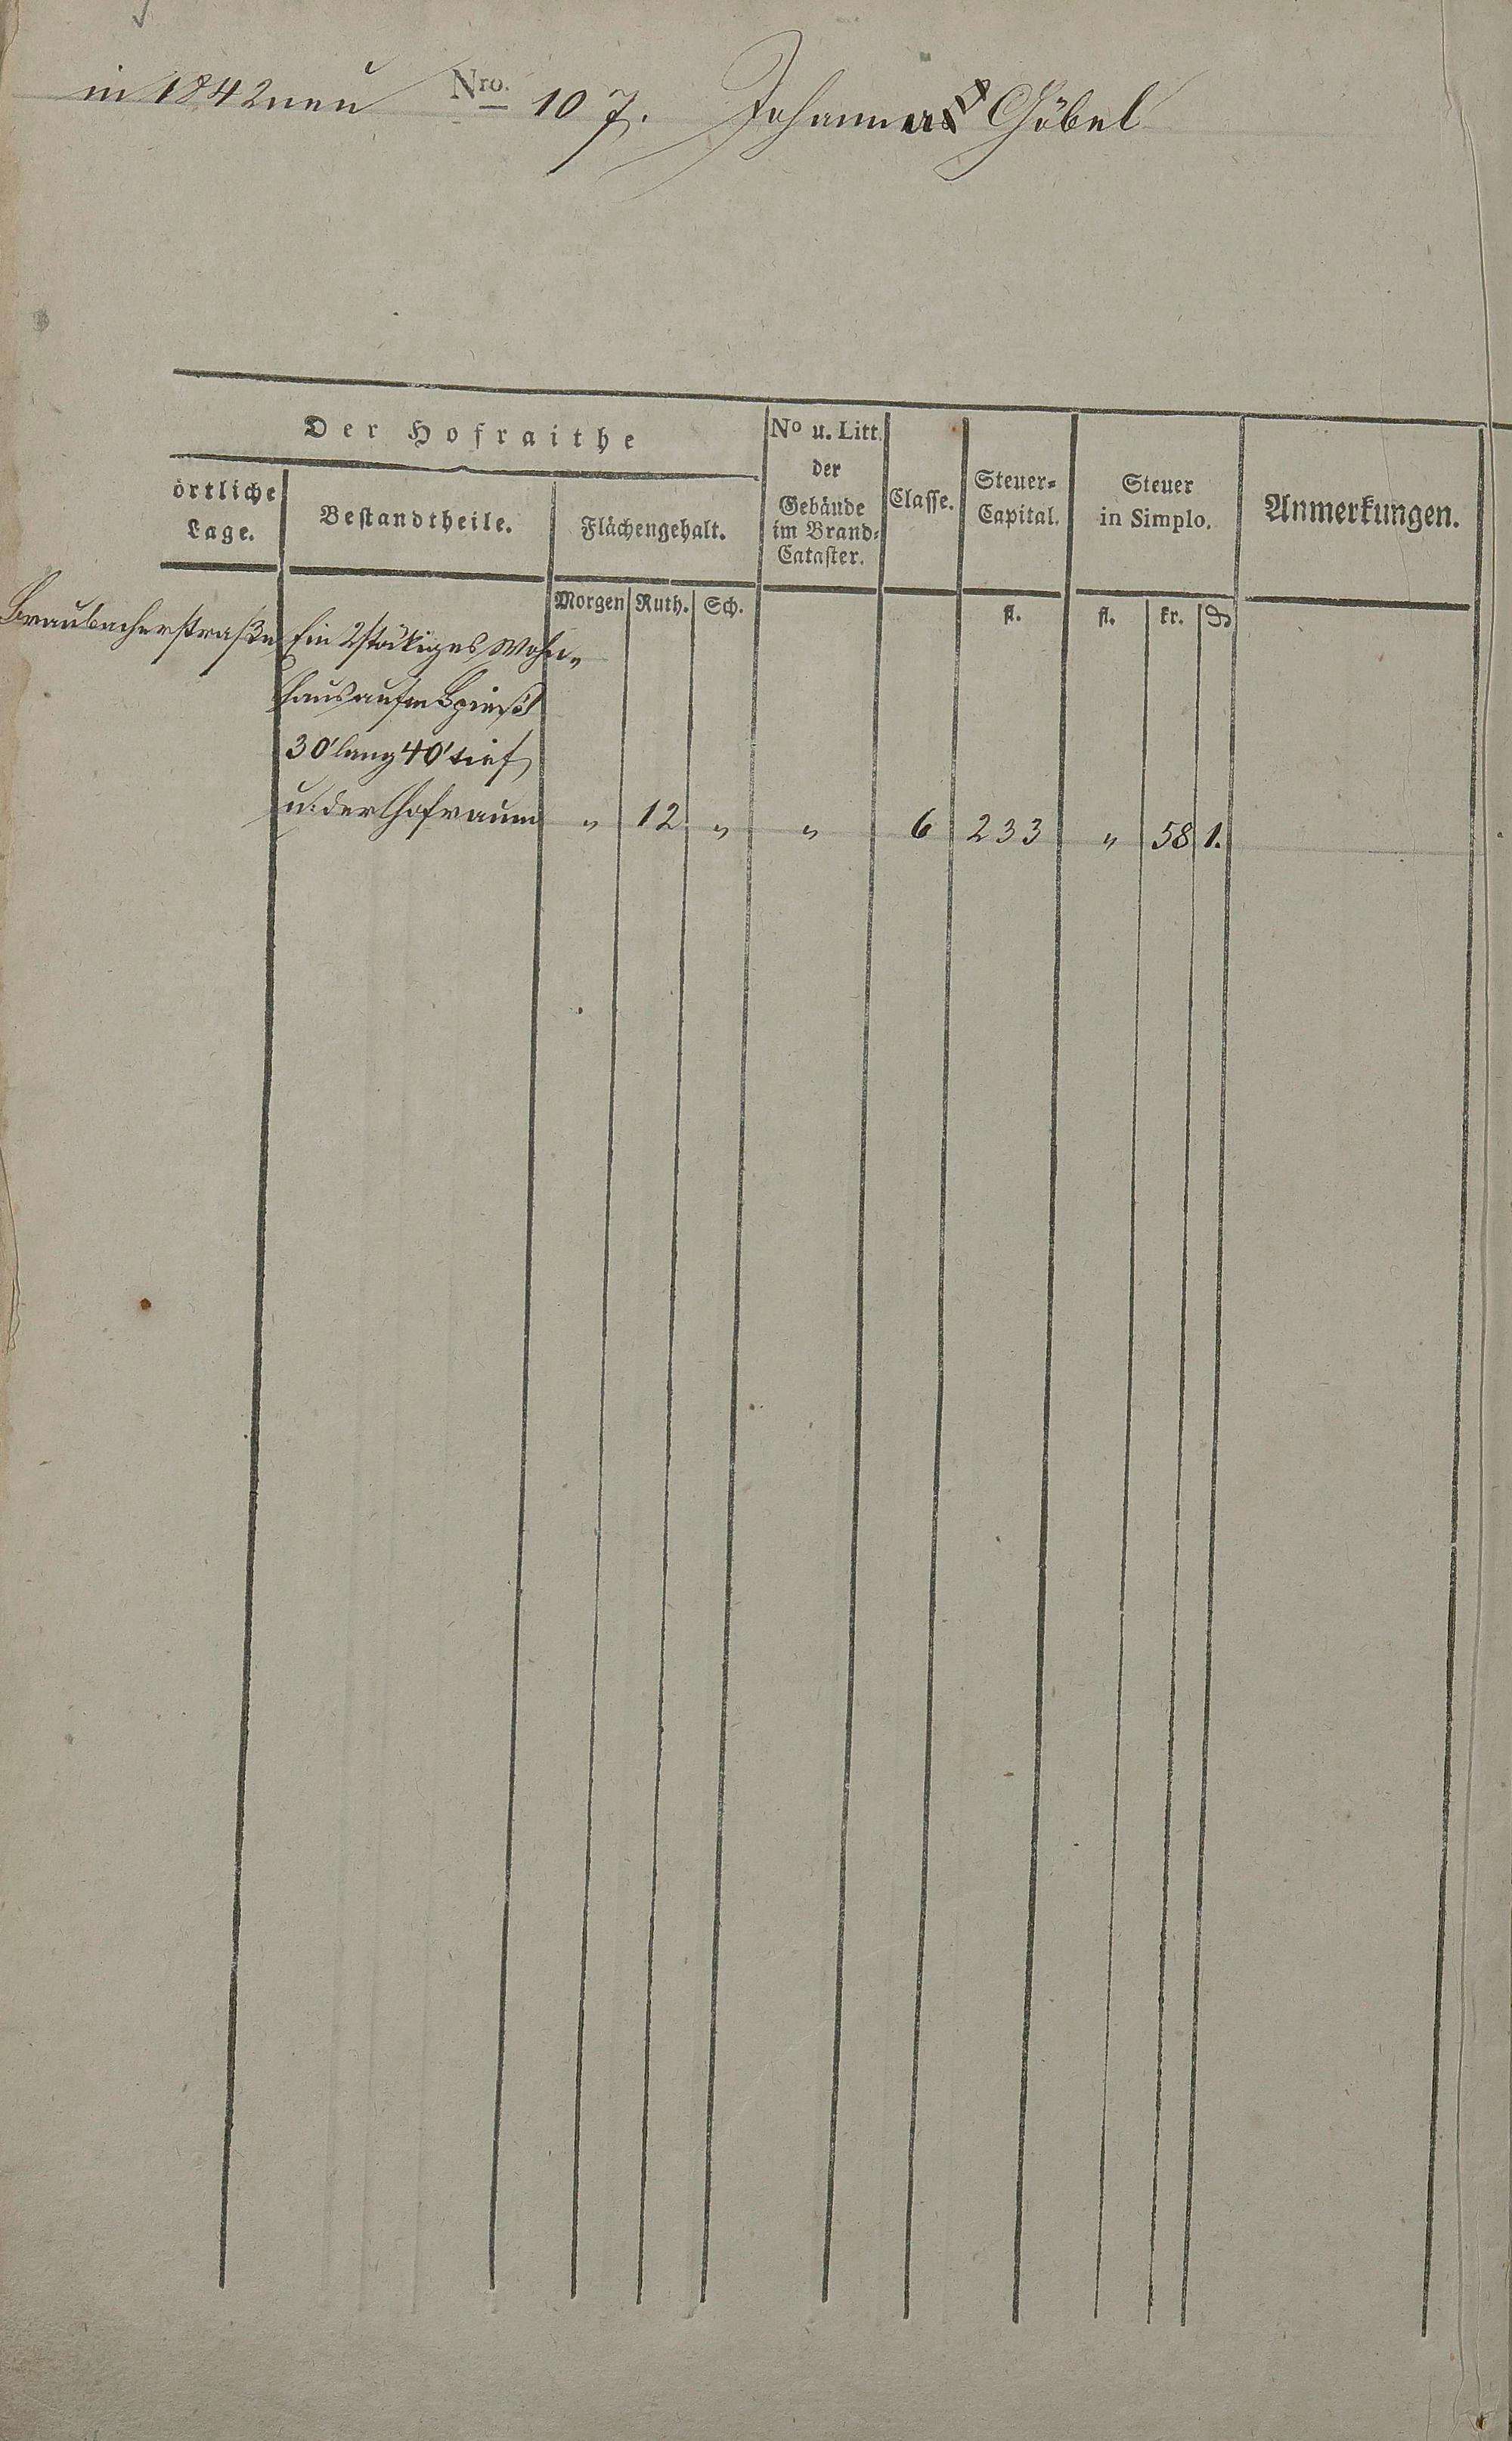 in 1842 neu Nro. 107. Johann Göbel
Der Hofraithe
örtliche Lage.
Bestandtheile.
Flächengehalt.
No u. Litt. der Gebäude im Brand-Cataster.
Classe.
Steuer-Capital.
Steuer in Simplo.
Anmerkungen.
Morgen Ruth. Sch. fl. fl. kr. ₰
Braubacherstraße Ein 2stökiges Wohn„
haus aufm Spieß
30' lang 40' tief
u. der Hofraum „ 12 „ „ 6 233 „ 58 1.